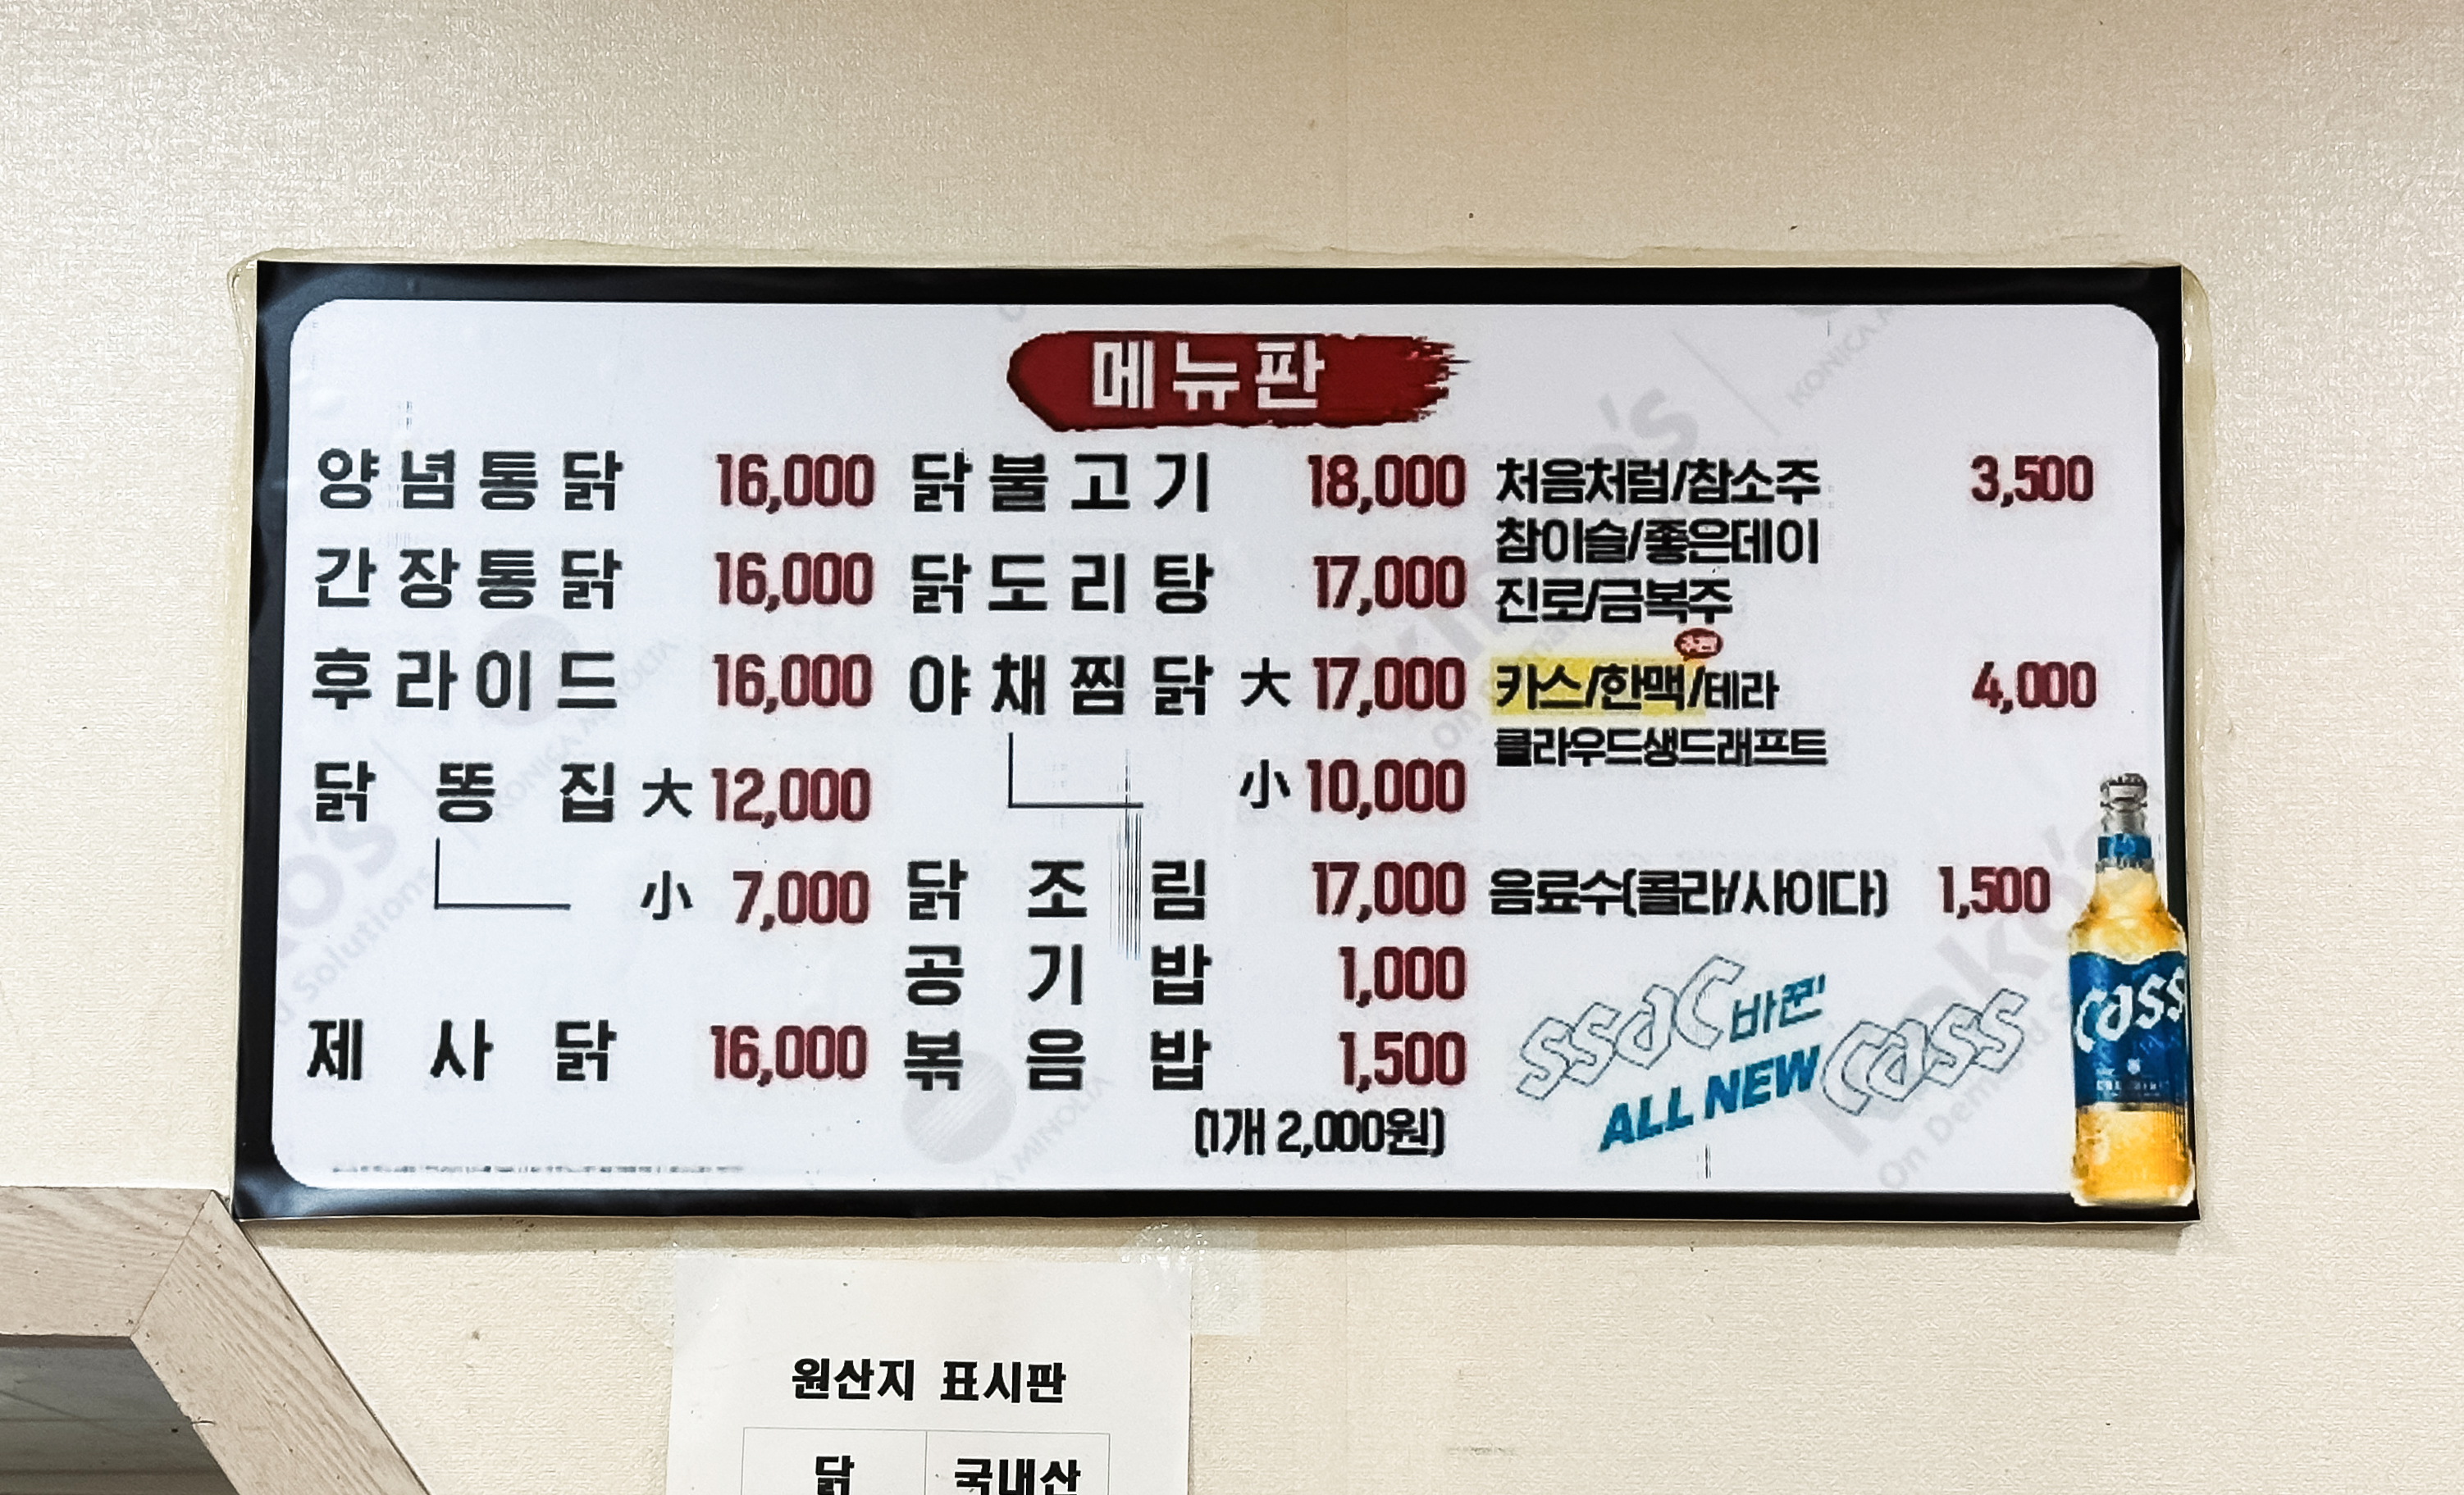 메뉴판
양념통닭 16,000
간장통닭 16,000
후라이드 16,000
닭똥집 大 12,000
小 7,000
제사닭 16,000
닭불고기 18,000
닭도리탕 17,000
야채찜닭 大 17,000
小 10,000
닭조림 17,000
공기밥 1,000
볶음밥 1,500
(1개 2,000원)
처음처럼/참소주 3,500
참이슬/좋은데이
진로/금복주
카스/한맥/테라 4,000
클라우드생드래프트
음료수(콜라/사이다) 1,500
ssac 바뀐
ALL NEW Cass
Cass
원산지 표시판
닭 국내산